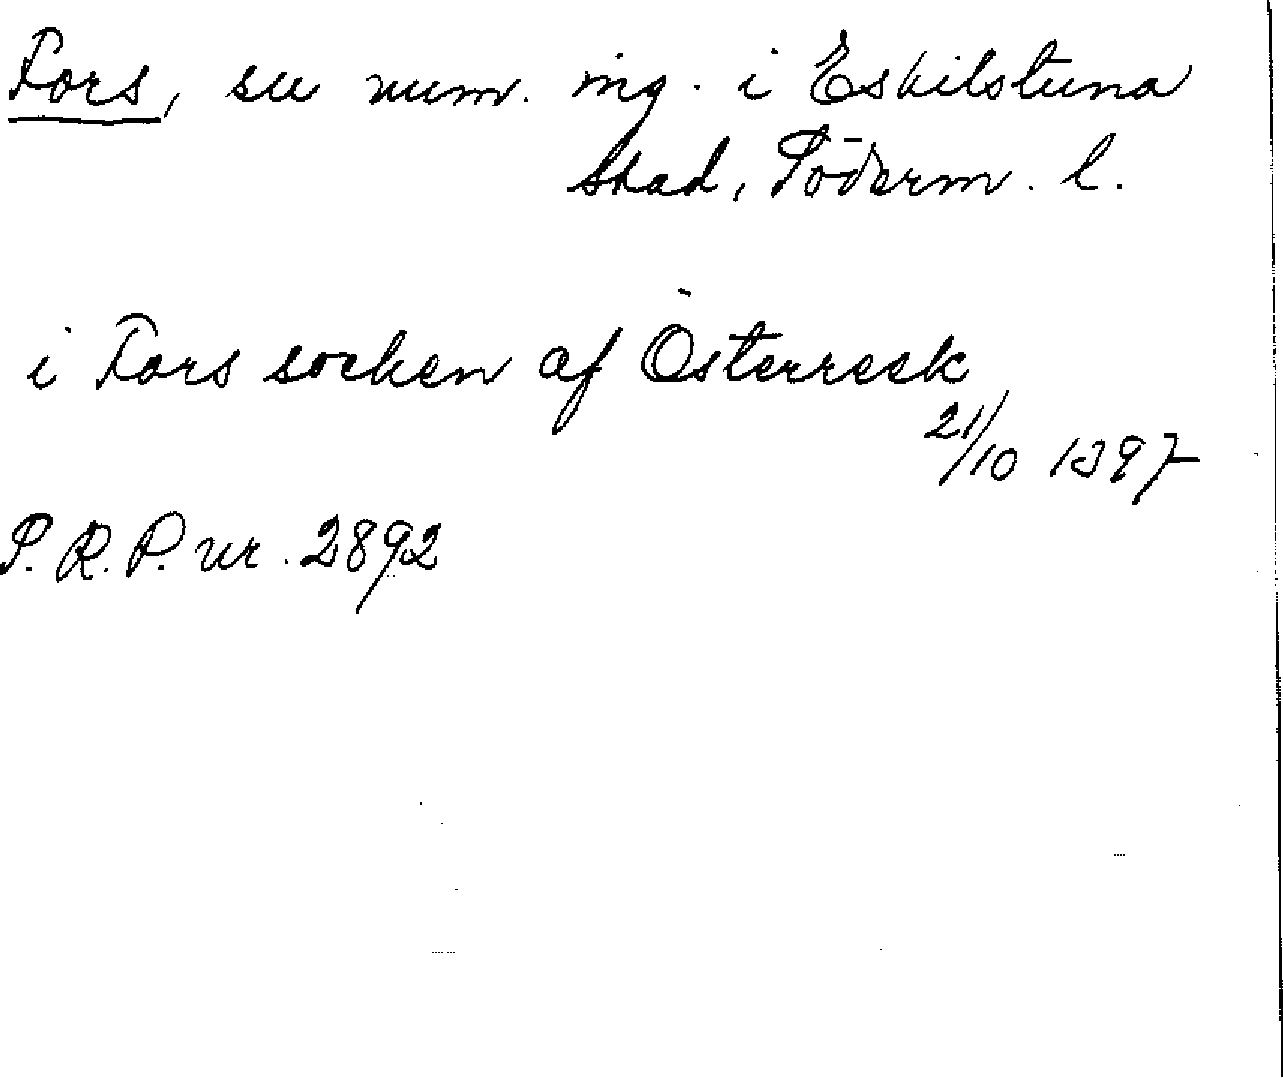 Fors, sn num. ing. i Eskilstuna
stad, Söderm. l.
i Fors socken af Österreek
21/10 1397
S. R. P. nr. 2892